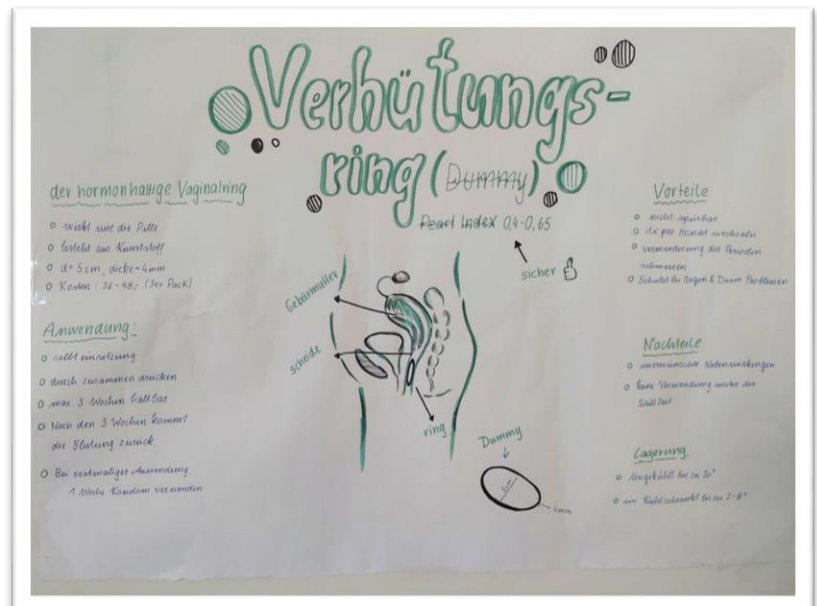 Verhütungs-
ring (Dummy)
Pearl Index 0,4-0,65
sicher
der hormonhaltige Vaginalring
o wirkt wie die Pille
o besteht aus Kunststoff
o d= 5cm, dicke= 4mm
o Kosten: 36-48,- (3er Pack)
Anwendung:
o selbst einsetzung
o durch zusammen drücken
o max. 3 Wochen haltbar
o Nach den 3 Wochen kommt
die Blutung zurück
o Bei erstmaliger Anwendung,
1 Woche Kondom verwenden
Gebärmutter
scheide
ring
Dummy
5cm
4mm
Vorteile
o nicht spürbar
o 1x pro Monat wechseln
o verminderung der Perioden
schmerzen
o Sicherheit bei Magen & Darm Problemen
Nachteile
o unerwünschte Nebenwirkungen
o keine Verwendung während der
Stillzeit
Lagerung
o Ungekühlt bis zu 30°
o im Kühlschrank bis zu 2-8°